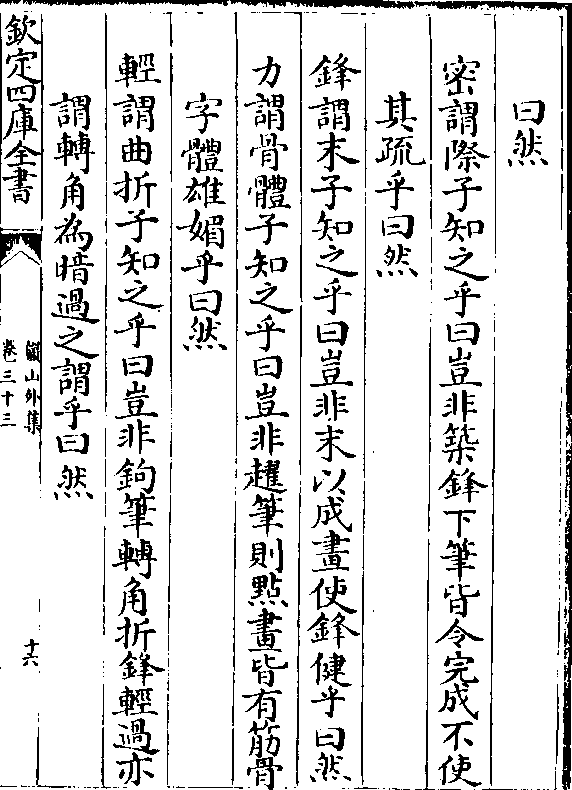 曰然
密謂際子知之乎曰豈非築鋒下筆皆令完成不使
其疏乎曰然
鋒謂末子知之乎曰豈非末以成畫使鋒健乎曰然
力謂骨體子知之乎曰豈非趯筆則點畫皆有筋骨
字體雄媚乎曰然
輕謂曲折子知之乎曰豈非鉤筆轉角折鋒輕過亦
謂轉角為暗過之謂乎曰然
欽定四庫全書
山外集
卷三十三
十六